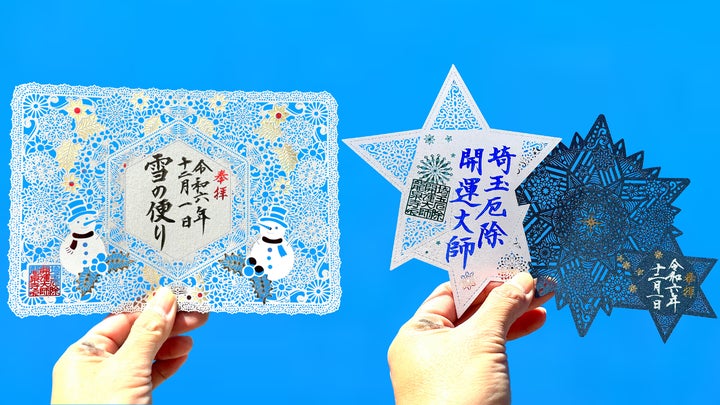 奉拝
令和六年
十二月一日
雪の便り
埼玉厄除
開運大師
奉拝
令和六年
十二月一日